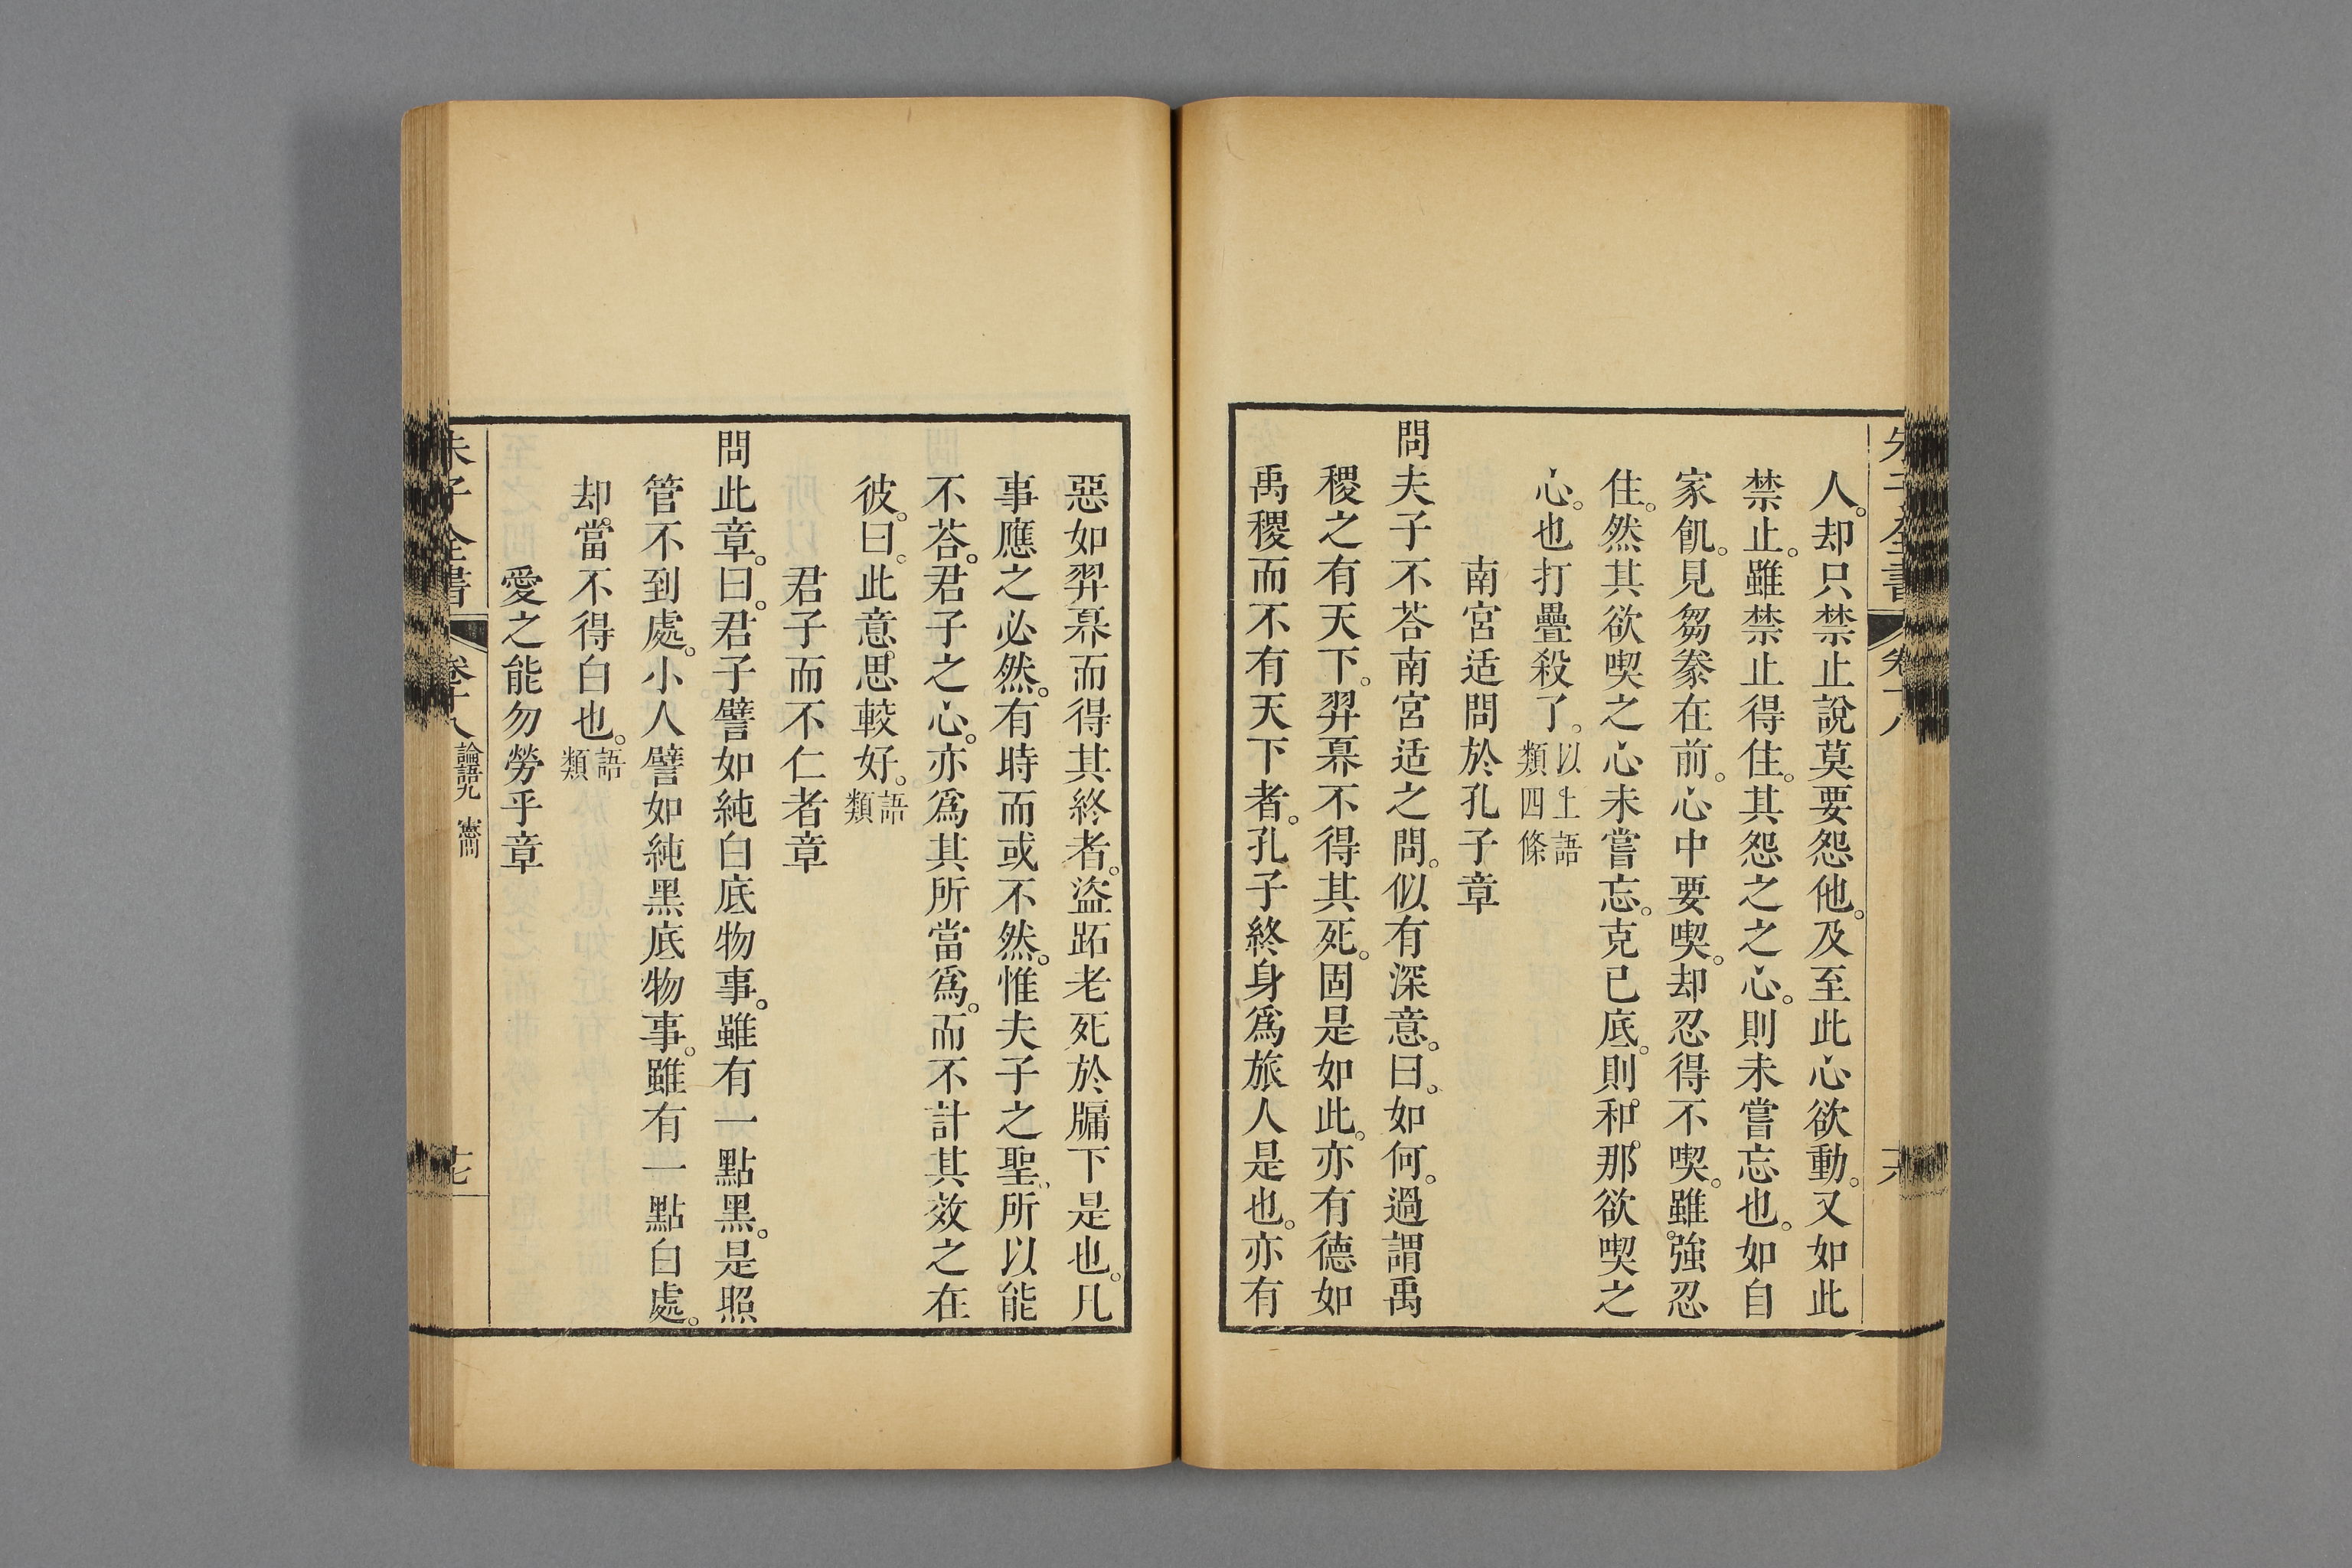 人。却只禁止說莫要怨他。及至此心欲動。又如此
禁止。雖禁止得住。其怨之之心。則未嘗忘也。如自
家飢。見芻豢在前。心中要喫。却忍得不喫。雖強忍
住。然其欲喫之心未嘗忘。克已底。則和那欲喫之
心。也打疊殺了。以上語類四條
南宮适問於孔子章
問夫子不荅南宮适之問。似有深意。曰。如何。過謂禹
稷之有天下。羿奡不得其死。固是如此。亦有德如
禹稷而不有天下者。孔子終身爲旅人是也。亦有
惡如羿奡而得其終者。盜跖老死於牖下是也。凡
事應之必然。有時而或不然。惟夫子之聖。所以能
不荅。君子之心。亦爲其所當爲。而不計其效之在
彼。曰。此意思較好。語類
君子而不仁者章
問此章。曰。君子譬如純白底物事。雖有一點黑。是照
管不到處。小人譬如純黑底物事。雖有一點白處。
却當不得白也。語類
愛之能勿勞乎章
朱子全書 卷十八 論語九